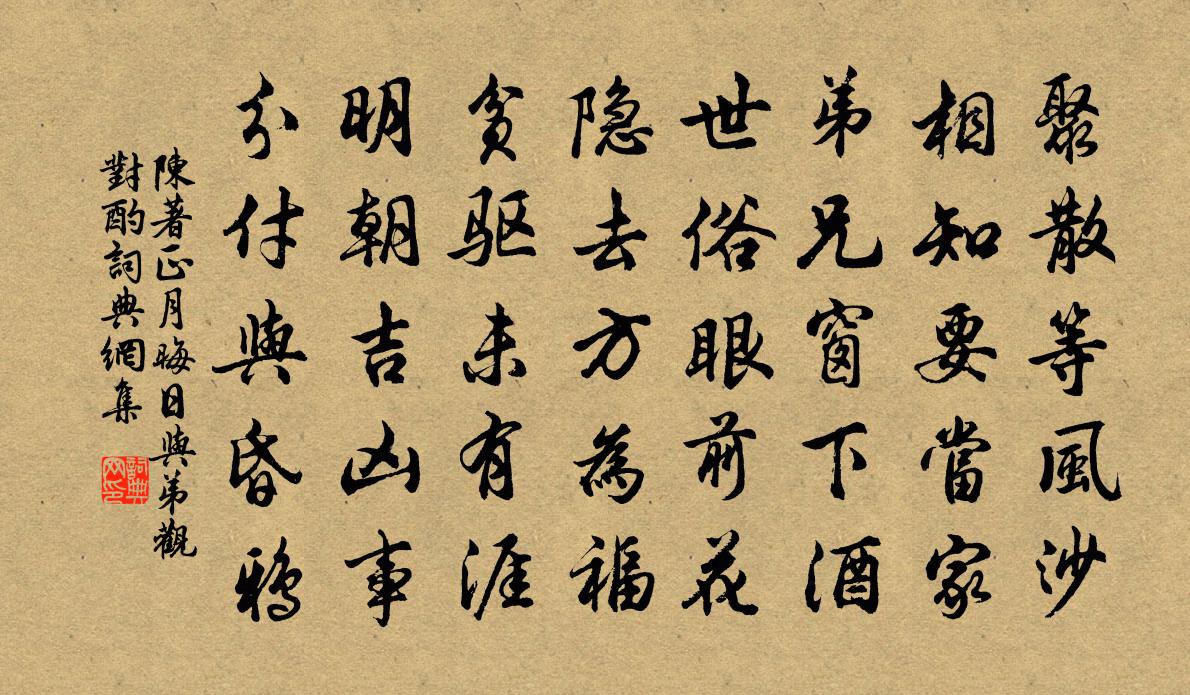 聚散等風沙
相知要當家
弟兄窗下酒
世俗眼前花
隐去方為福
貧驱未有涯
明朝吉凶事
分付與昏鴉
陳著正月晦日與弟觀
對酌詞典網集
詞典网印